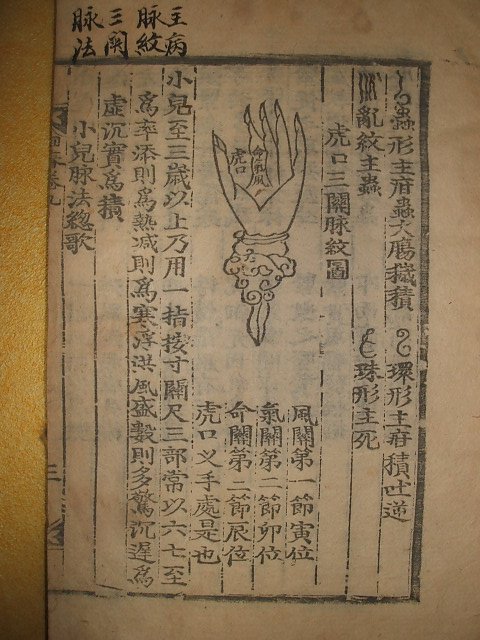 主病
脉紋
三関
脉法
蟲形主疳蟲大腸穢積
環形主疳積吐逆
亂紋主蟲
珠形主死
虎口三關脉紋圖
命氣風
虎口
風關第一節寅位
氣關第二節卯位
命關第三節辰位
虎口乂手處是也
小兒至三歲以上乃用一指按寸關尺三部常以六七至
爲率添則爲熱减則爲寒浮洪風盛數則多驚沉遲爲
虛沉實爲積
小兒脉法總歌